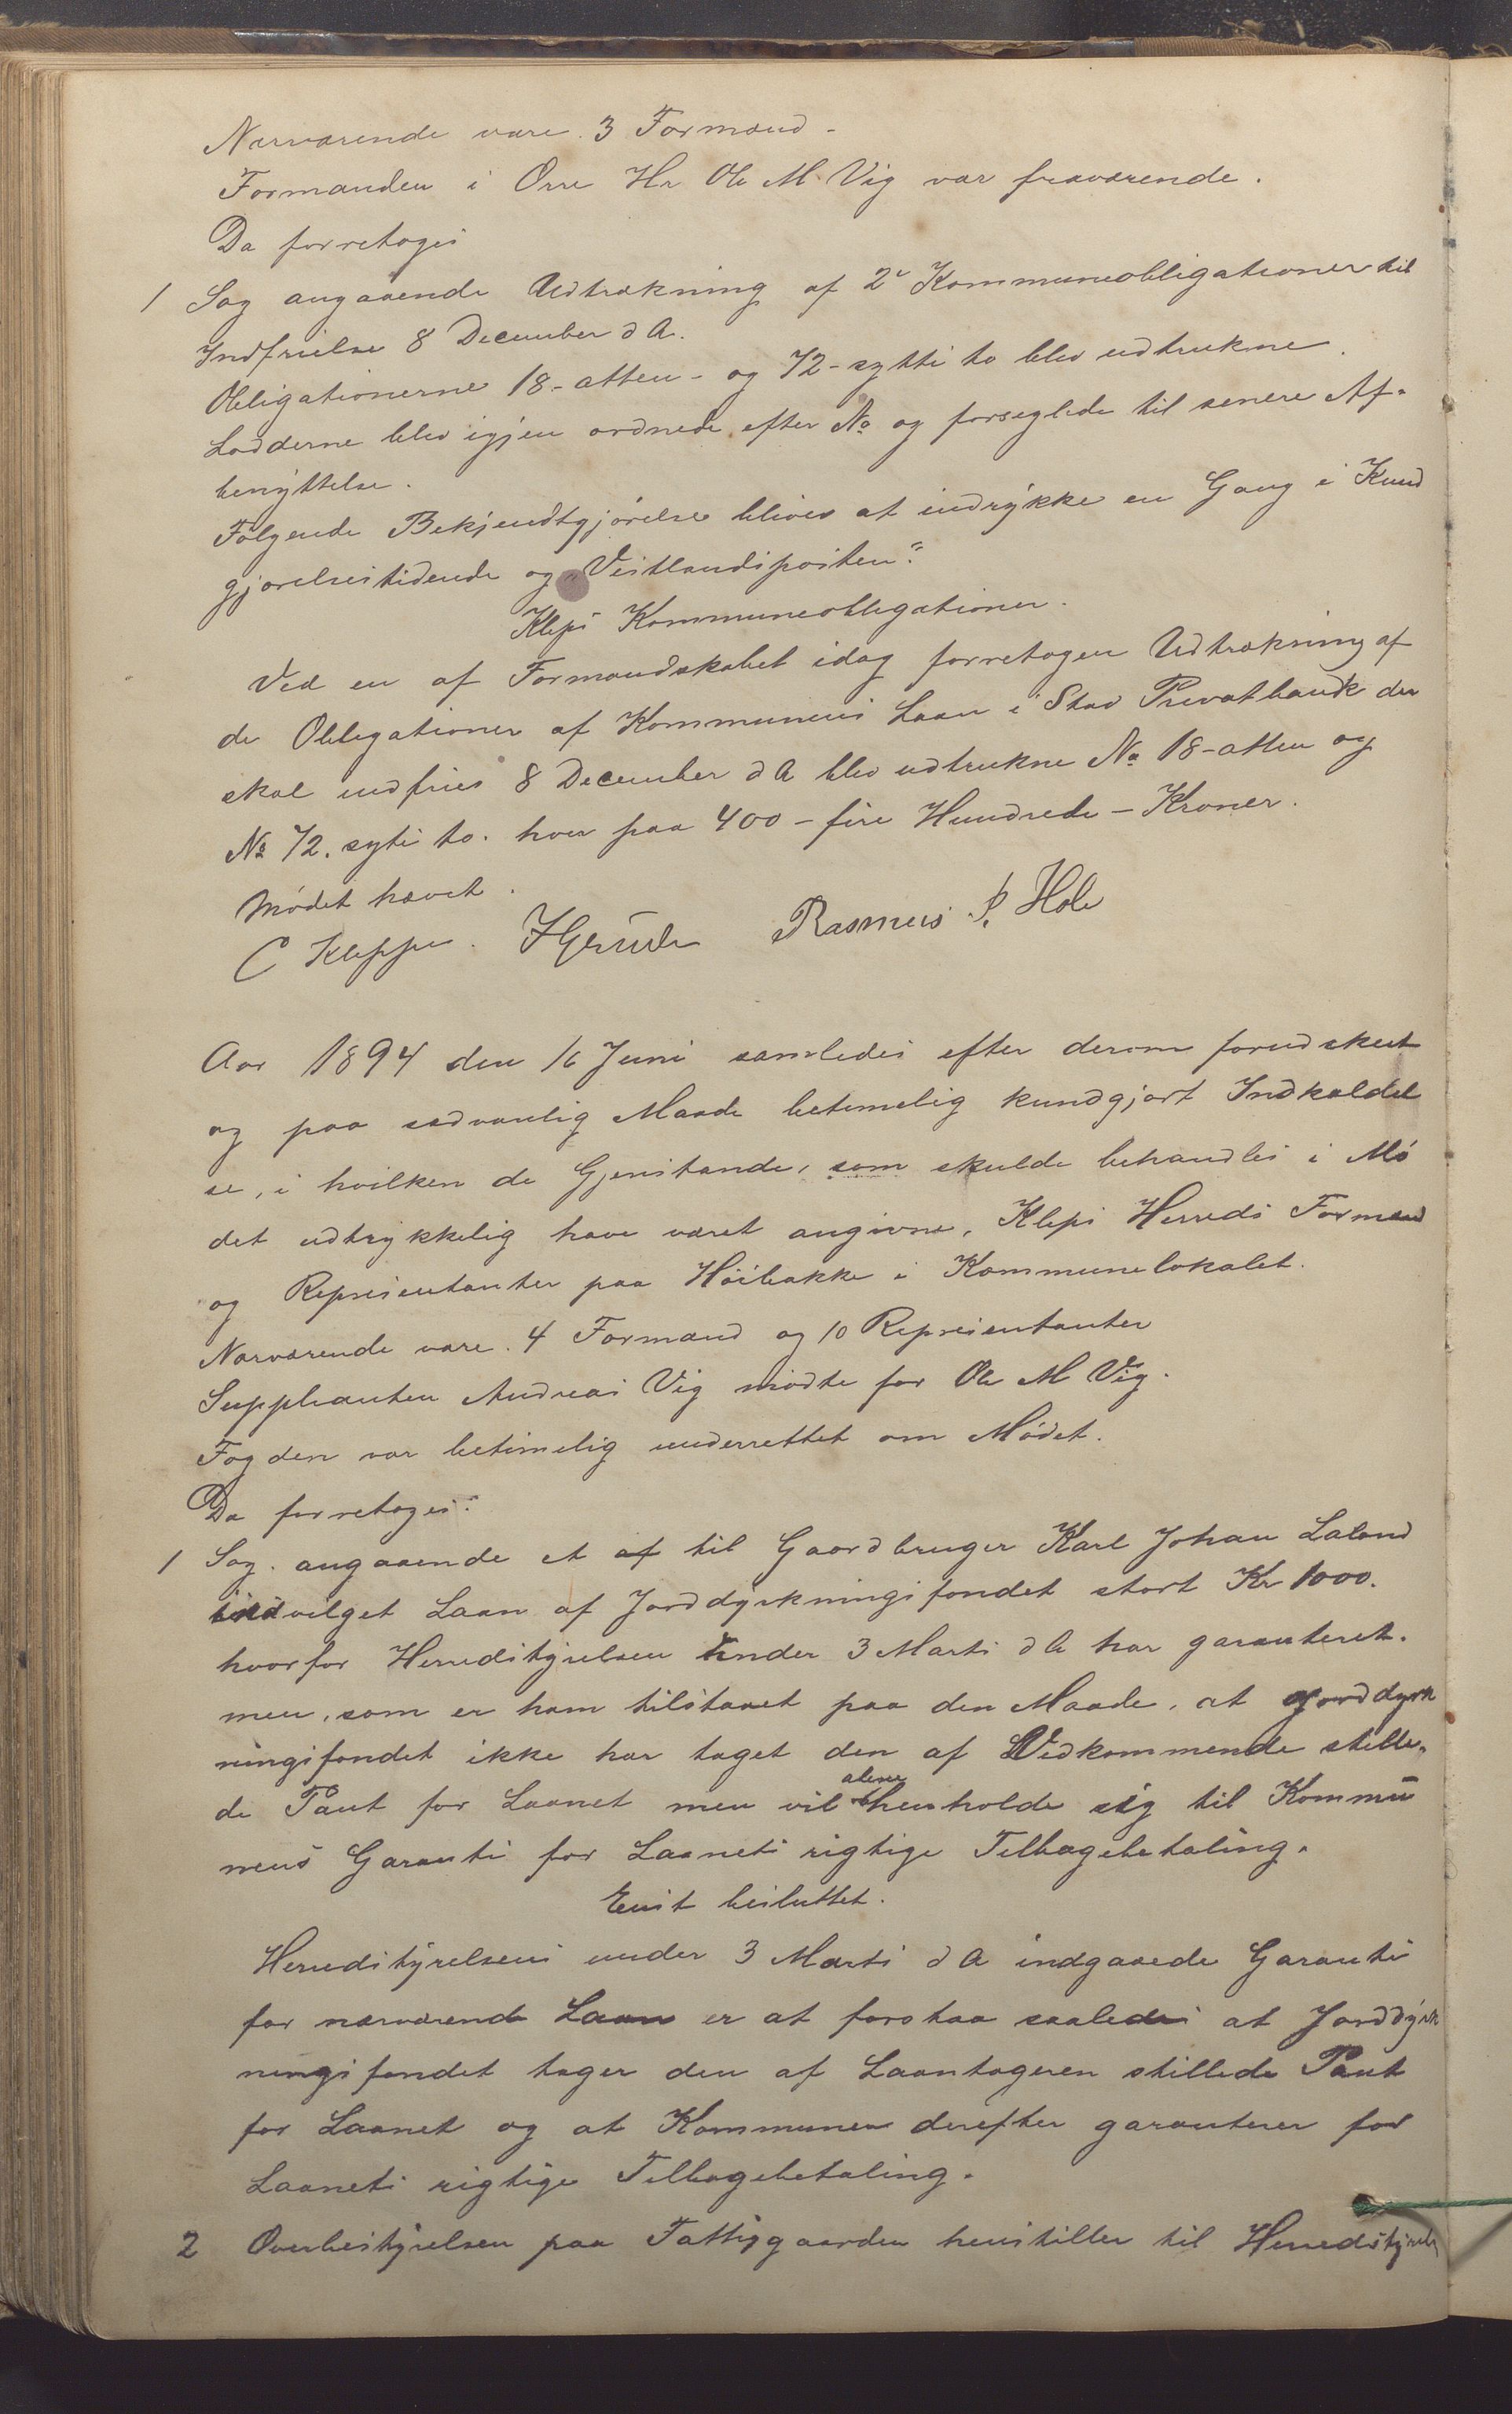 Nærværende vare 3 Formænd -
Formanden i Orre Hr Ole M Vig var fraværende.
Da forretoges
1 Sag angaaende Udtrækning af 2de Kommuneobligationer til
Indfrielse 8 December d A.
Obligationerne 18 - atten - og 72 - sytti to blev udtrukne.
Lodderne blev igjen ordnede efter No og forseglede til senere Af-
benyttelse.
Følgende Bekjendtgjørelse blives at indrykke en Gang i Kund
gjørelsestidende og "Vestlandsposten":
Kleps Kommuneobligationer.
Ved en af Formandskabet idag forretagen Udtrækning af
de Obligationer af Kommunens Laan i Stav Privatbank der
skal indfries 8 December d A blev udtrukne No 18 - atten og
No 72. sytti to. hver paa 400 - fire Hundrede - Kroner.
Mødet hævet.
C Kleppe. Rasmus P. Hole
Aar 1894 den 16 Juni samledes efter derom forudskeet
og paa sædvanlig Maade betimelig kundgjort Indkaldel
se, i hvilken de Gjenstande, som skulde behandles i Mø
det udtrykkelig have været angivne, Kleps Herreds Formænd
og Repræsentanter paa Høibakke i Kommunelokalet.
Nærværende vare. 4 Formænd og 10 Repræsentanter
Suppleanten Andreas Vig mødte for Ole M Vig.
Fogden var betimelig underrettet om Mødet.
Da forretoges:
1 Sag. angaaende et af til Gaardbruger Karl Johan Laland
indvilget Laan af Jorddyrkningsfondet stort Kr 1000.
hvorfor Herredstyrelsen under 3 Marts d A har garanteret.
men, som er ham tilstaaet paa den Maade, at Jorddyrk
ningsfondet ikke har taget den af Vedkommende stille-
de Pant for Laanet men vil alene henholde sig til Kommu
nens Garanti for Laanets rigtige Tilbagebetaling.
Enst besluttet.
Herredstyrelsens under 3 Marts d A indgaaede Garanti
for nærværende Laan er at forstaa saaledes at Jorddyrk
ningsfondet tager den af Laantageren stillede Pant
for Laanet og at Kommunen derefter garanterer for
Laanets rigtige Tilbagebetaling.
2 Overbestyrelsen paa Fattiggaarden henstiller til Herredstyrels